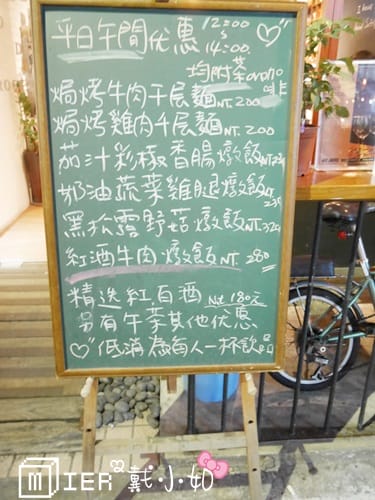 平日午間优惠
12:00
〜
14:00
均附茶or
焗烤牛肉千层麵NT.200
焗烤雞肉千层麵NT.200
茄汁彩椒香腸燉飯NT.
奶油蔬菜雞腿燉飯NT.
黑松露野菇燉飯NT.320
紅酒牛肉燉飯NT 280
精选紅白酒 Nt 180元
另有午茶其他优惠
低消為每人一杯飲品
MIER²戴小奴